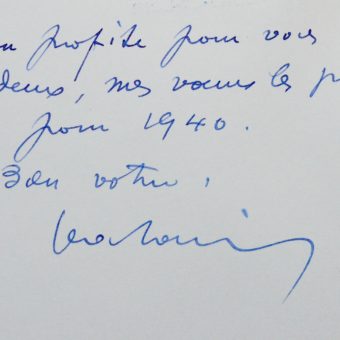 profite pour vous
deux, mes vœux les p
pour 1940.
Bien votre,